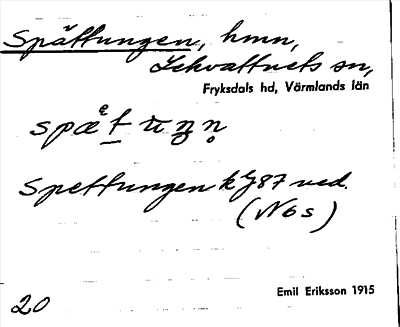 Spättungen, hmn,
Lekvattnets sn,
Fryksdals hd, Värmlands län
Spettungen kJ 87 ned.
(N6s)
Emil Eriksson 1915
20